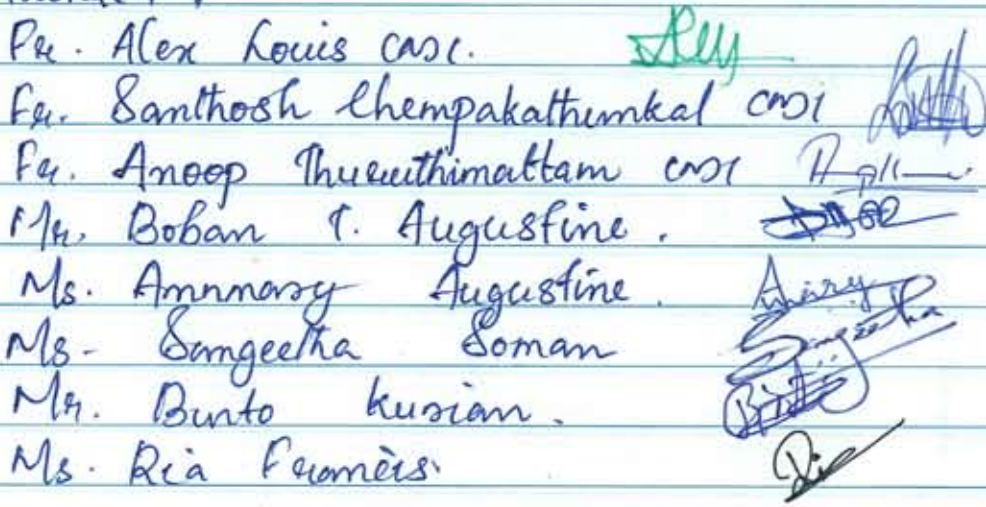 Fr. Alex Louis CMI.
Fr. Santhosh Chempakathumkal CMI
Fr. Anoop Thuruthimattam CMI
Mr. Boban T. Augustine.
Ms. Annmary Augustine. Anmary
Ms. Sangeetha Soman Sangeetha
Mr. Binto Kurian. Binto
Ms. Ria Francis. Ria